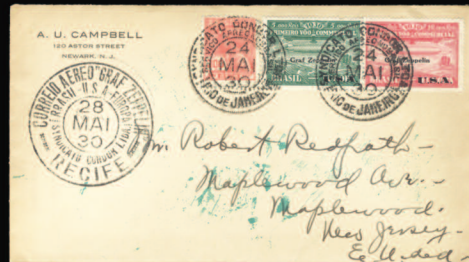 A. U. CAMPBELL
120 ASTOR STREET
NEWARK, N. J.
SYNDICATO CONDOR
24
MAI
30
RIO DE JANEIRO
Graf Zeppelin
BRASIL
24
MAI
30
RIO DE JANEIRO
Graf Zeppelin
U.S.A.
CORREIO AEREO "GRAF ZEPPELIN"
BRASIL-U.S.A.-EUROPA
28
MAI
30
SYNDICATO CONDOR LTDA.
RECIFE
Mr. Robert Redpath-
Maplewood Ave.-
Maplewood.
New Jersey-
E. U. de A-